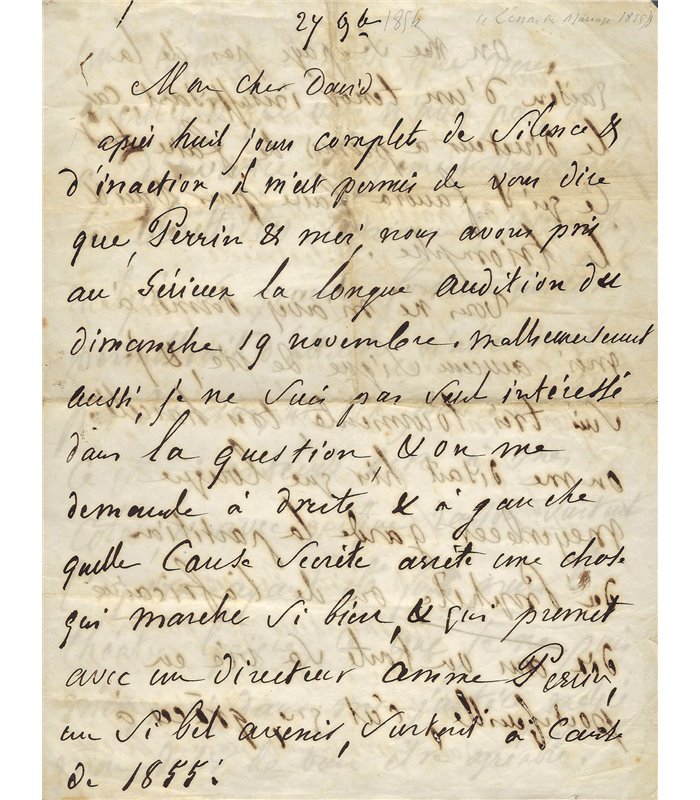 27 9bre 1854
Mon cher David
après huit jours complet de Silence &
d'inaction, il m'est permis de vous dire
que, Perrin & moi, nous avons pris
au Sérieux la longue audition du
dimanche 19 novembre. malheureusement
aussi, je ne suis pas seul intéressé
dans la question, & on me
demande à droite & à gauche
quelle Cause Secrète arrète une chose
qui marche Si bien, & qui promet
avec un directeur comme Perrin,
un Si bel avenir, surtout à Cause
de 1855!